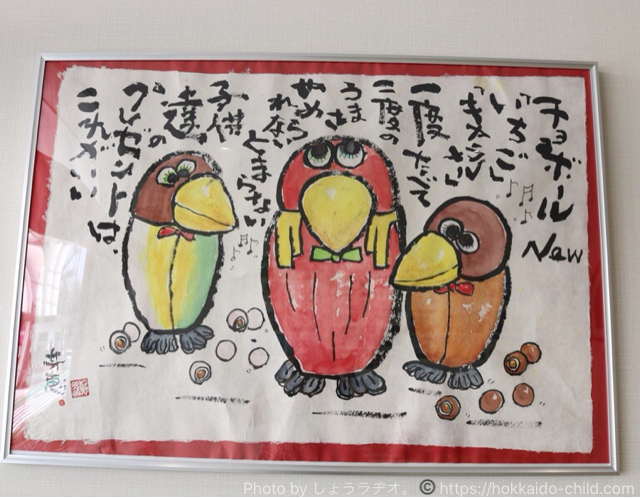 チョコボール
New
「いちご」
「キャラメル」
一度たべて
二度の
うまさ
やめられない
とまらない
子供
達の
プレゼントは、
これがいい
Photo by しょうラヂオ。 © https://hokkaido-child.com